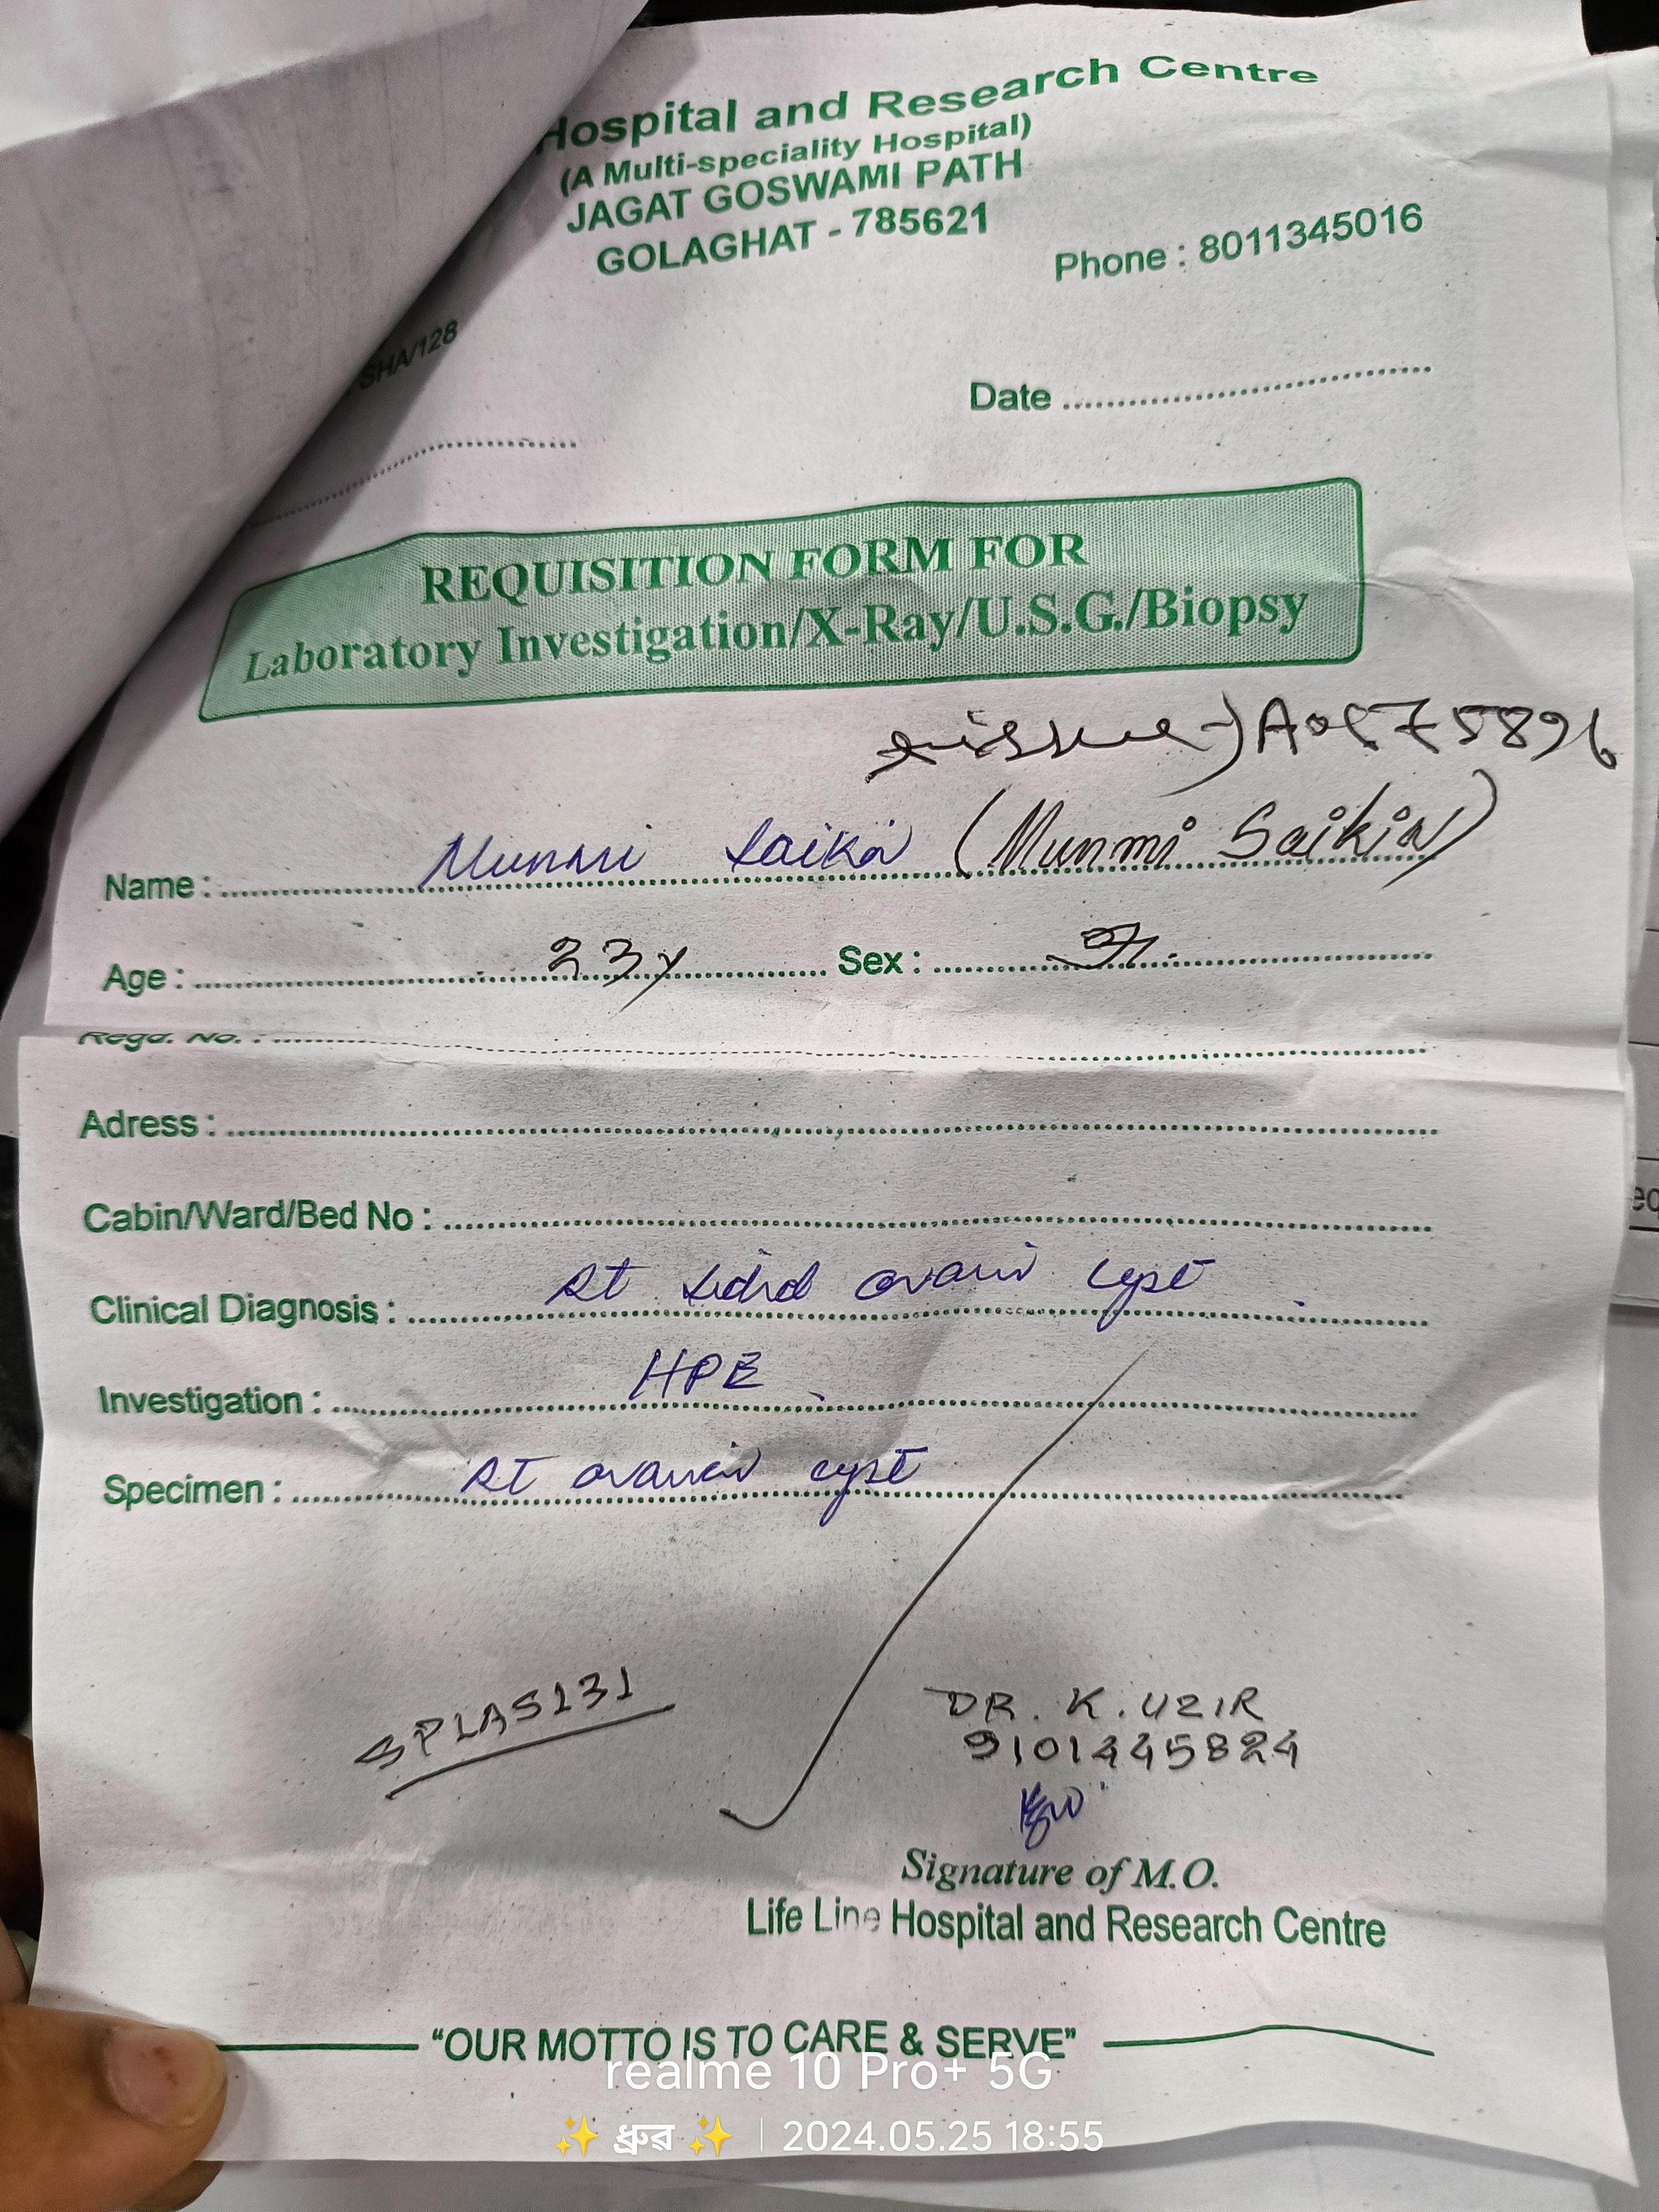 Hospital and Research Centre
(A Multi-speciality Hospital)
JAGAT GOSWAMI PATH
GOLAGHAT - 785621
Phone : 8011345016
SHA/128
Date
REQUISITION FORM FOR
Laboratory Investigation/X-Ray/U.S.G./Biopsy
Name : Munmi Saikia (Munmi Saikia)
Age : 23y Sex :
Regd. No. :
Adress :
Cabin/Ward/Bed No :
Clinical Diagnosis : Rt sided ovarian cyst
Investigation : HPE
Specimen : Rt ovarian cyst
SPLAS131
DR. K. UZIR
9101445824
Signature of M.O.
Life Line Hospital and Research Centre
"OUR MOTTO IS TO CARE & SERVE"
realme 10 Pro+ 5G
✨ ধ্ৰুৱ ✨ | 2024.05.25 18:55
eq